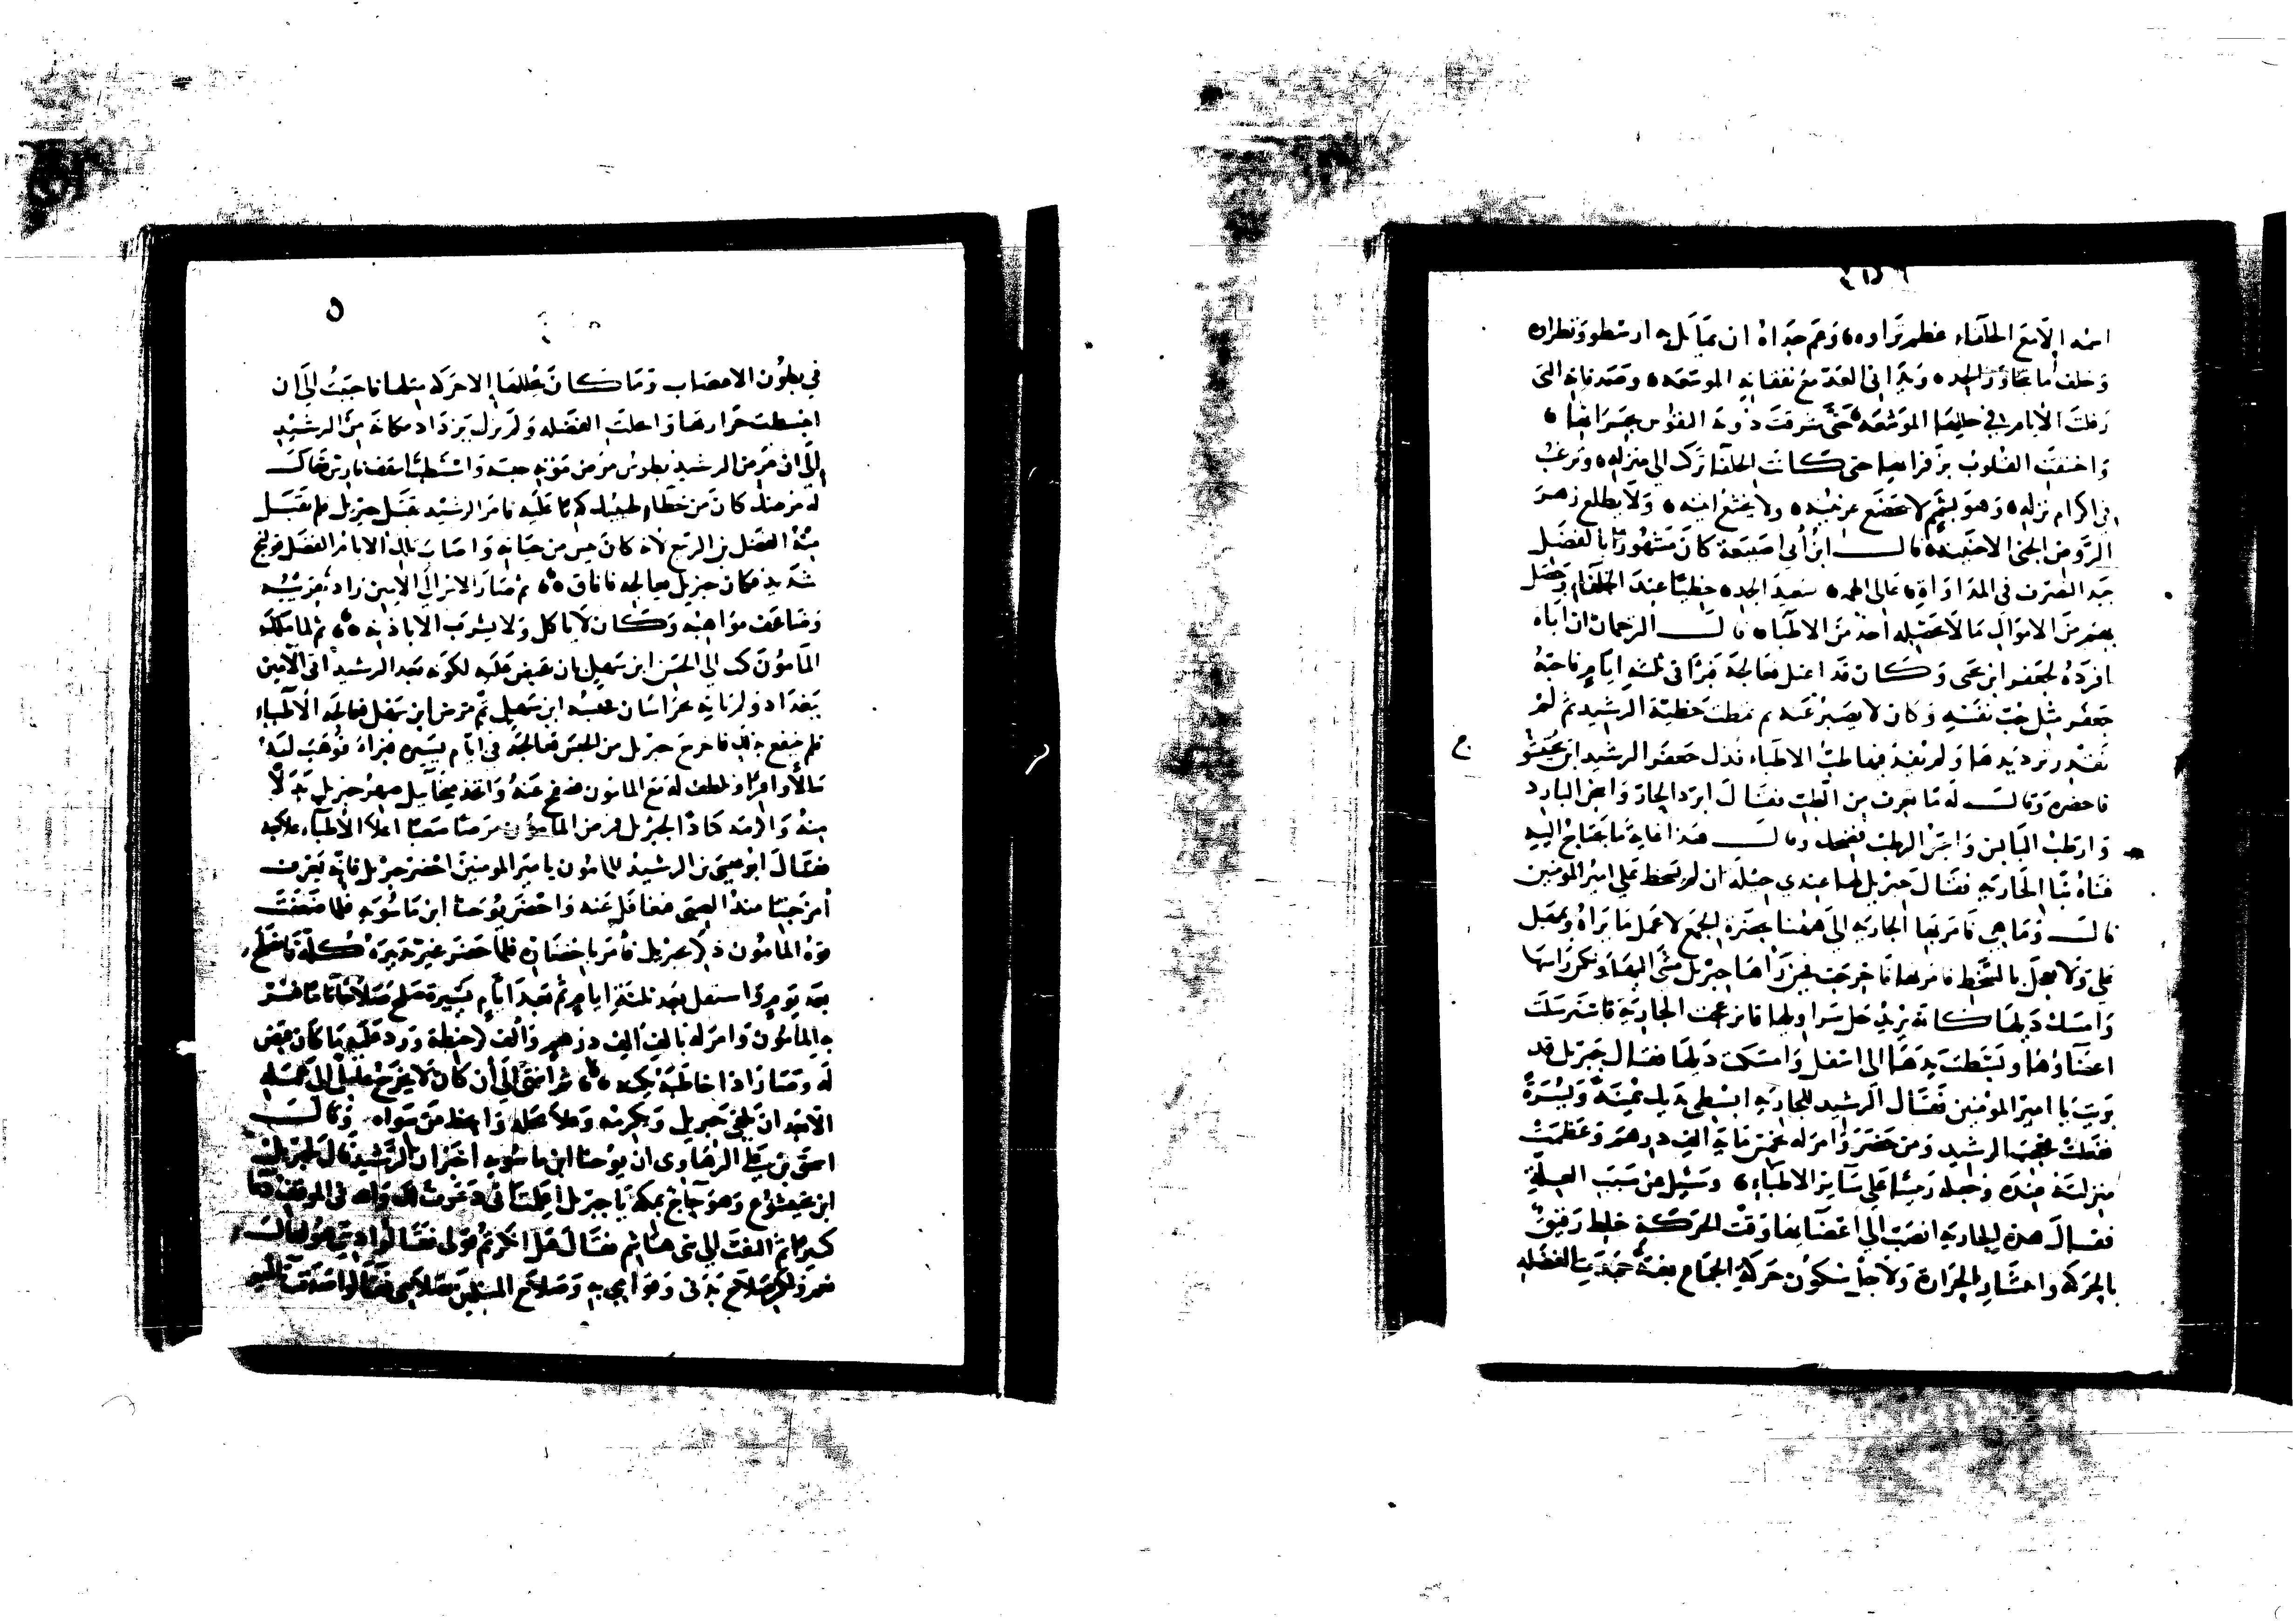 اسمه إلا مع الخلفاء عظم نزاوه ولم جداه ان يماثل به ارسطو ونظراه
وخلف ما تجاوز الحد وبذا في العد مع نفقاته الموسعه وصدقاته التي
رفلت الأيام في حللها الموشعه حتى شرقت
القلوب حتى كانت الخلفا تركب الى منزله وترغب
في اكرام نزله وهو لا يخضع عرنينه ولا يخشع انينه ولا يطلع زهر
الروض الجنى الا جنينه قالـــ ابن أبي اصيبعة كان مشهورا بالفضل
جيد التصرف في المداواة عالى الهمه سعيد الجد حظيا عند الخلفاء وحصل
بهم من الاموال ما لا حصله احد من الاطباء قالــ الترجمان ان اباه
افرده لجعفر ابن يحيى وكان قد اعتل فعالجه فبرأ في ثلثة ايام فاحبه
جعفر مثل حب نفسه وكان لا يصبر عنه ثم تمطت حظية الرشيد ثم لم
تقدر ترد يدها ولم يفد فيها طب الاطباء فدل جعفر الرشيد ابن بختيشوع
فاحضره وقالــ له ما تعرف من الطب فقال ابرد الحار واسخن البارد
وارطب اليابس وايبس الرطب فضحك وقالــ هذا غاية ما يحتاج اليه
فناه نبا الجارية فقال جبريل لها عندي حيلة ان لم تسخط علي امير المؤمنين
قالــ وما هي قال تامر بها الجارية الى ههنا بحضرة الجمع لاعمل ما اراه وتمهل
علي ولا تعجل بالسخط فامر بها فاخرجت فحين رأها جبريل مشى اليها ونكس راسها
وامسك ذيلها كانه يريد حل سراويلها فانزعجت الجارية فاسترسلت
اعضاؤها وبسطت يدها الى اسفل وامسكت ذيلها فقال جبريل قد
بريت يا امير المؤمنين فقال الرشيد للجارية ابسطي يديك يمنة ويسرة
ففعلت فعجب الرشيد ومن حضر وامر له بخمس ماية الف درهم وعظمت
منزلته عنده وجعله رئيسا على سائر الاطباء وسئل عن سبب العلة
فقال هذه الجارية انصب الى اعضائها وقت الحركة خلط رقيق
بالحركة وانتشار الحرارة ولاجل سكون حركة الجماع بغتة جمدت الفضله
٥
في بطون الاعصاب وما كان يحللها إلا حركة مثلها فاحتلت إلى ان
انبسطت حرارتها وانحلت الفضله ولم يزل يزداد مكانة من الرشيد
إلى ان مرض الرشيد بطوس مرض موته
له مرضك كان من خطاء طبيبك فامر الرشيد بقتل جبريل فلم يقبل
منه الفضل بن الربيع لانه كان يئس من حياته واصاب تلك الايام الفضل قولنج
شديد فكان جبريل يعالجه فافاق ثم صار الامر إلى الامين زاد تقريبه
وضاعف مواهبه وكان لا ياكل ولا يشرب الا باذنه ثم لما ملك
المأمون كتب إلى الحسن ابن سهل بان يقبض عليه لكونه بعد الرشيد اتى الامين
ببغداد ولم ياته بخراسان فحبسه ابن سهل ثم مرض ابن سهل فعالجه الاطباء
فلم ينتفع فاخرج جبريل من الحبس فعالجه في ايام يسيره فبراه فوهب له
مالا وافرا وتلطف له مع المامون فصفح عنه واتخذ ميخائيل صهر جبريل بدلا
منه واكرمه كيادا لجبريل فمرض المامون مرضا صعبا اعلا الاطباء علاجه
فقال ابو عيسى بن الرشيد للمامون يا امير المومنين احضر جبريل فانه يعرف
أمزجتنا منذ الصبى فتغافل عنه واحضر يوحنا ابن ماسويه فلما ضعفت
قوة المامون ذكر جبريل فأمر باحضاره فلما حضر غير تدبيره كله
بعد يوم واستقل بعد ثلثة ايام ثم بعد ايام يسيرة صلح صلاحا تاما فسر
به المأمون وامر له بالف الف درهم والف كر حنطة ورد عليه ما كان قبض
له وصار اذا خاطبه يكنيه ثم انتهى إلى أن كان لا يخرج عامل إلى عمله
الا بعد ان يلقى جبريل ويكرمه وقالـــ
اسحق بن علي الرهاوى ان يوحنا ابن ماسويه اخبر ان الرشيد قال لجبريل
ابن بختيشوع وهو حاج بمكة يا جبريل اعلمت اني دعوت لك والله في الموقف دعا
كثيرا ثم التفت إلى بني هاشم فقال هل انكرتم قولى فقالوا ذمي فقالـــ
نعم ولكن صلاح بدنى وقوامي به وصلاح المسلمين بصلاحي فقالوا صدقت